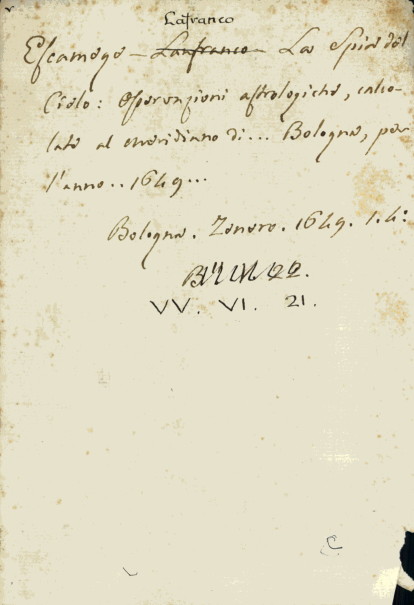 Lafranco
Escamege – Lanfranco – La Spia del
Cielo: osservazioni astrologiche, calco-
late al meridiano di... Bologna, per
l'anno.. 1649...
Bologna. Zenero. 1649. 1. 4:
VV. VI. 21.
C